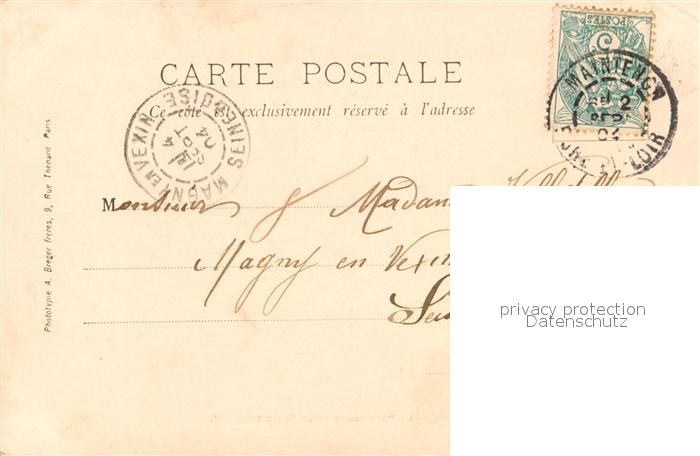 POSTES
5
MAINTENON
EURE-ET-LOIR
CARTE POSTALE
Ce côté est exclusivement réservé à l'adresse
MAGNY EN VEXIN
SEINE-ET-OISE
Monsieur & Madame
Magny en Vexin
privacy protection
Datenschutz
Phototypie A. Breger frères, 9, Rue Thenard Paris